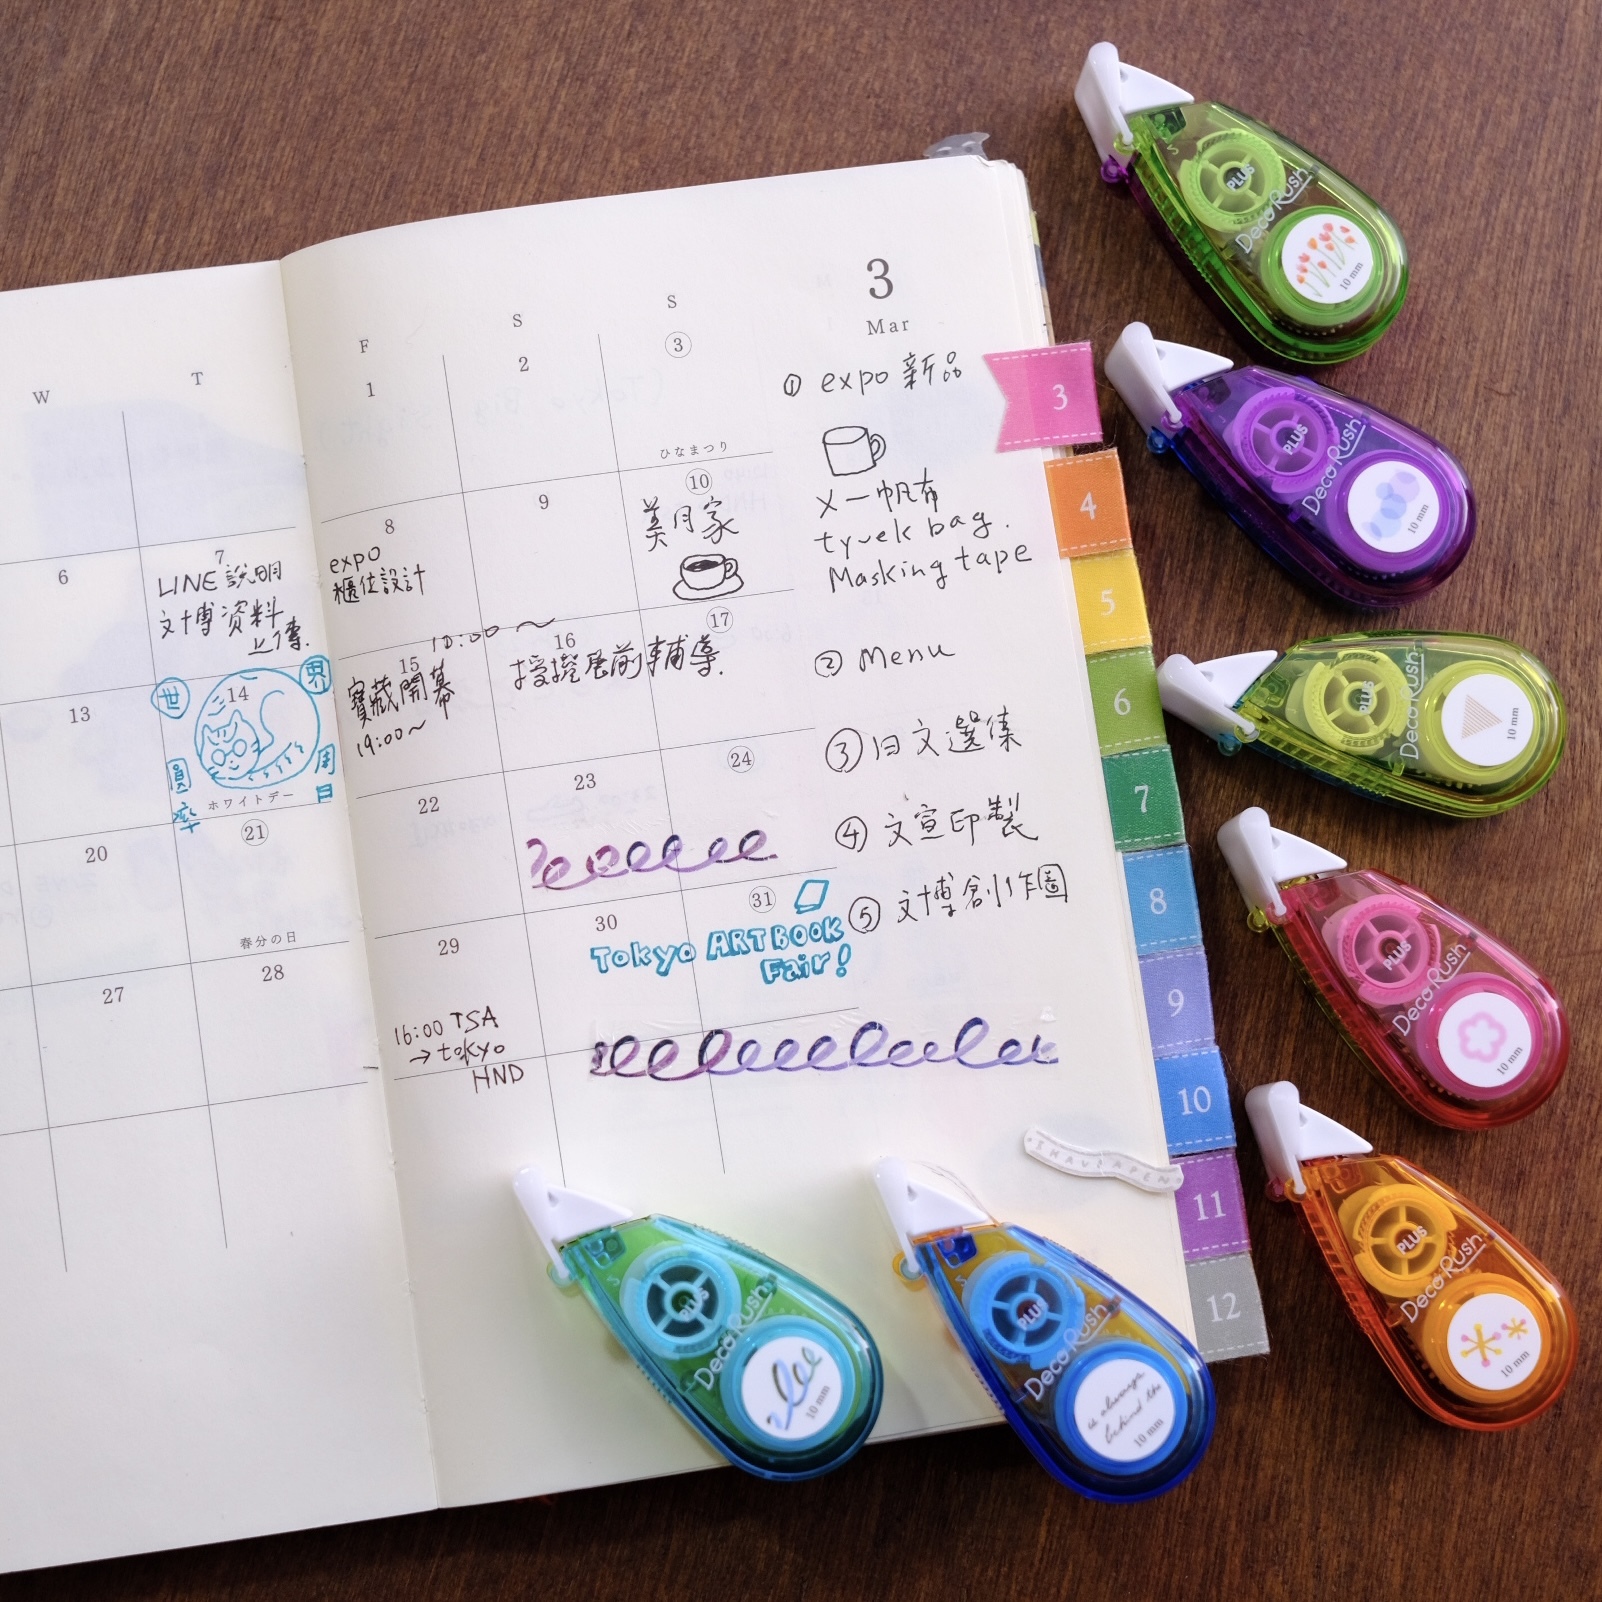 3
Mar
W
T
F
S
S
1
2
3
ひなまつり
6
7
LINE 說明
文博資料
上傳.
8
expo
櫃位設計
9
10
美月家
13
14
世界
圓周
率日
ホワイトデー
15
寶藏開幕
19:00~
10:00 ~
16
授權展前輔導.
17
20
21
春分の日
22
23
24
27
28
29
16:00 TSA
→ tokyo
HND
30
31
Tokyo ART BOOK
Fair!
① expo 新品
X 一帆布
tyvek bag.
Masking tape
② Menu
③ 日文選集
④ 文宣印製
⑤ 文博創作圖
3
4
5
6
7
8
9
10
11
12
PLUS
Deco Rush
10 mm
PLUS
Deco Rush
10 mm
PLUS
Deco Rush
10 mm
PLUS
Deco Rush
10 mm
PLUS
Deco Rush
10 mm
PLUS
Deco Rush
10 mm
PLUS
Deco Rush
is always
behind the
10 mm